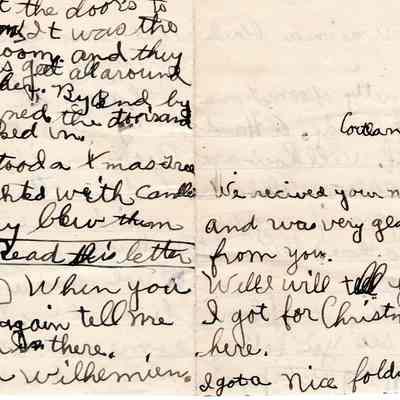 the doors to
It was the
room. and they
all around
her. By and by
the door and
in.
stood a Xmas tree
with candles
blew them
Read this letter
When you
again tell me
there.
Wilhemien.
Cortlan
We recived your n
and was very gla
from you.
will tell y
I got for Christm
here.
I got a Nice foldi